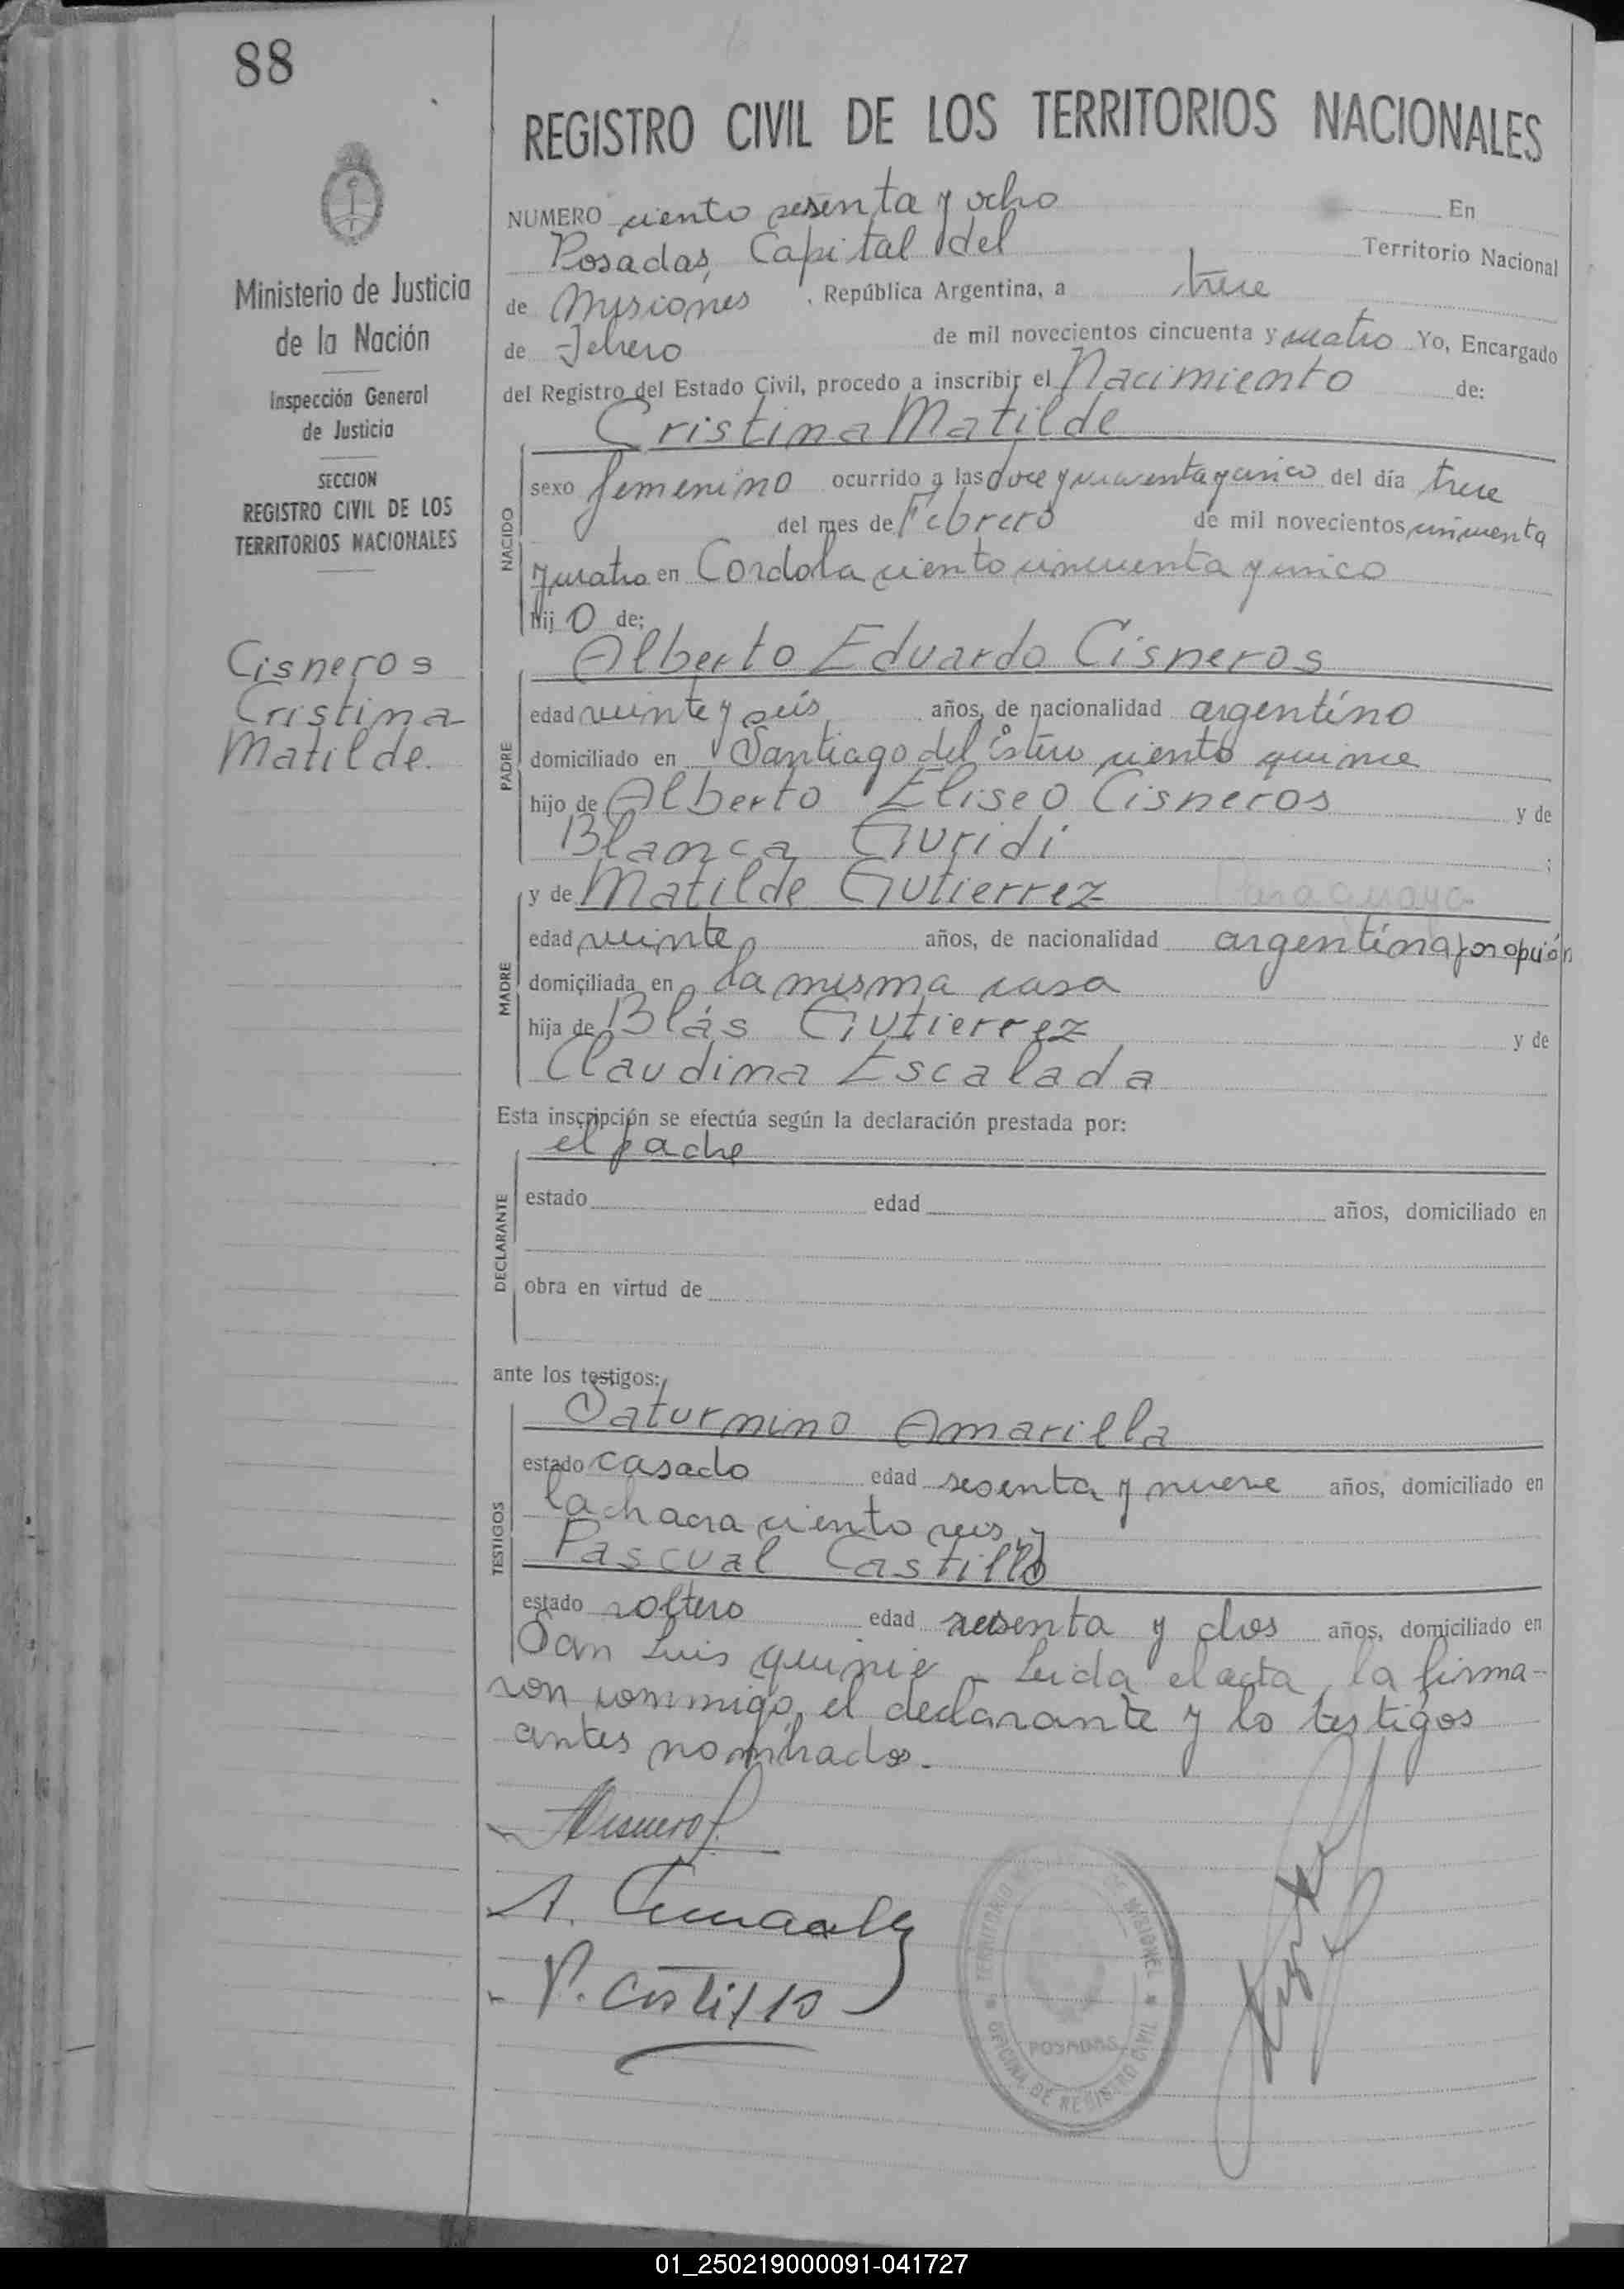 88
REGISTRO CIVIL DE LOS TERRITORIOS NACIONALES
Ministerio de Justicia
de la Nación
Inspección General
de Justicia
SECCION
REGISTRO CIVIL DE LOS
TERRITORIOS NACIONALES
Cisneros
Cristina
Matilde.
NUMERO ciento sesenta y ocho En
Posadas, Capital del Territorio Nacional
de Misiones , República Argentina, a trece
de Febrero de mil novecientos cincuenta y cuatro Yo, Encargado
del Registro del Estado Civil, procedo a inscribir el Nacimiento de:
Cristina Matilde
NACIDO
sexo femenino ocurrido a las doce y cuarenta y cinco del día trece
del mes de Febrero de mil novecientos cincuenta
y cuatro en Cordoba ciento cincuenta y cinco
hij o de:
Alberto Eduardo Cisneros
PADRE
edad veinte y seis años, de nacionalidad argentino
domiciliado en Santiago del Estero ciento quince
hijo de Alberto Eliseo Cisneros y de
Blanca Guridi ;
y de Matilde Gutierrez Paraguaya
MADRE
edad veinte años, de nacionalidad argentina por opción
domiciliada en la misma casa
hija de Blás Gutierrez y de
Claudina Escalada
Esta inscripción se efectúa según la declaración prestada por:
el padre
DECLARANTE
estado edad años, domiciliado en
obra en virtud de
ante los testigos:
Saturnino Amarilla
TESTIGOS
estado casado edad sesenta y nueve años, domiciliado en
la chacra ciento seis y
Pascual Castillo
estado soltero edad sesenta y dos años, domiciliado en
San Luis quince - Leida el acta, la firma-
ron conmigo, el declarante y lo testigos
antes nombrados.-
P. Castillo
TERRITORIO DE MISIONES
POSADAS
OFICINA DE REGISTRO CIVIL
01_250219000091-041727